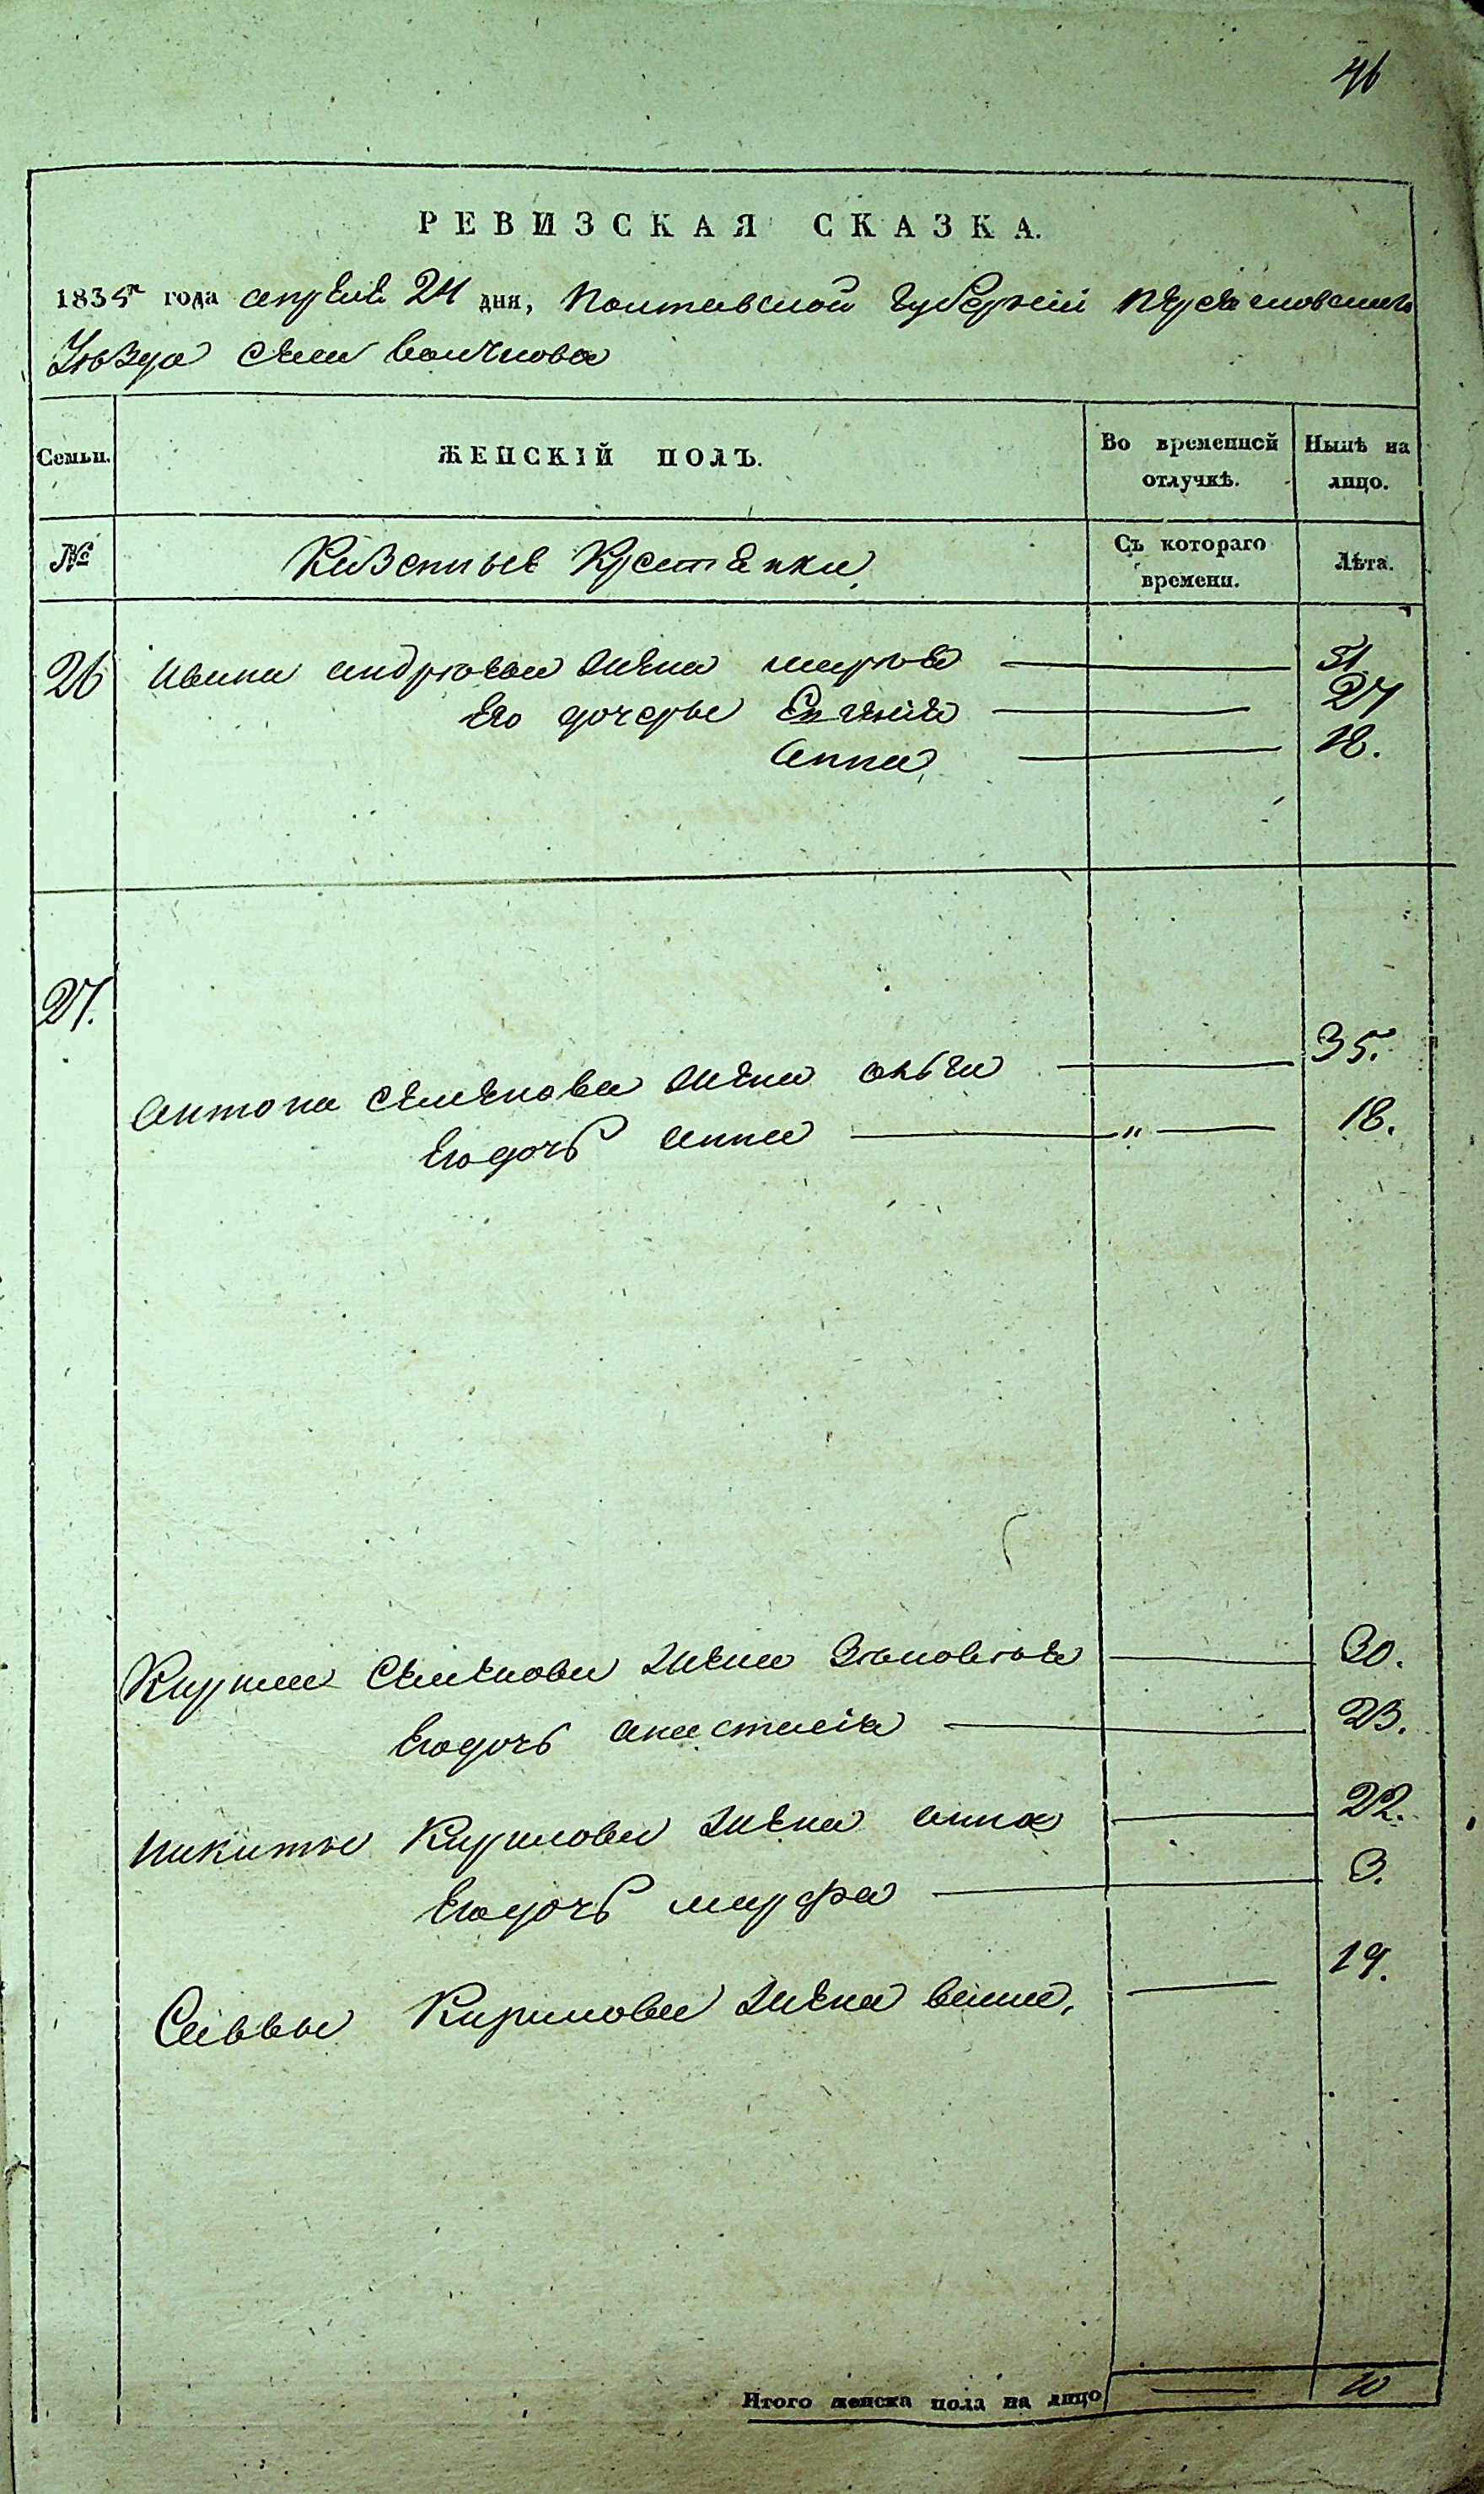 46
РЕВИЗСКАЯ СКАЗКА.
1835го года апреля 24 дня, Полтавской губерніи Переяславскаго
Уѣзда села Войткова
Семьи. ЖЕНСКІЙ ПОЛЪ. Во временной отлучкѣ. Нынѣ на лицо.
№ Казенные Крестянки Съ котораго времени. Лѣта.
26 Ивана андрѣева жена марія 51
Его дочеры Евгенія 27
анна 18.
27.
антона семенова жена ольга 35.
Его дочь анна " 18.
Кирила Семенова жена Зѣновѣя 30.
Его дочь анастасія 23.
никиты Кирилова жена анна 22.
Его дочь марфа 3.
Саввы Кирилова жена васса, 19.
Итого женска пола на лицо 10